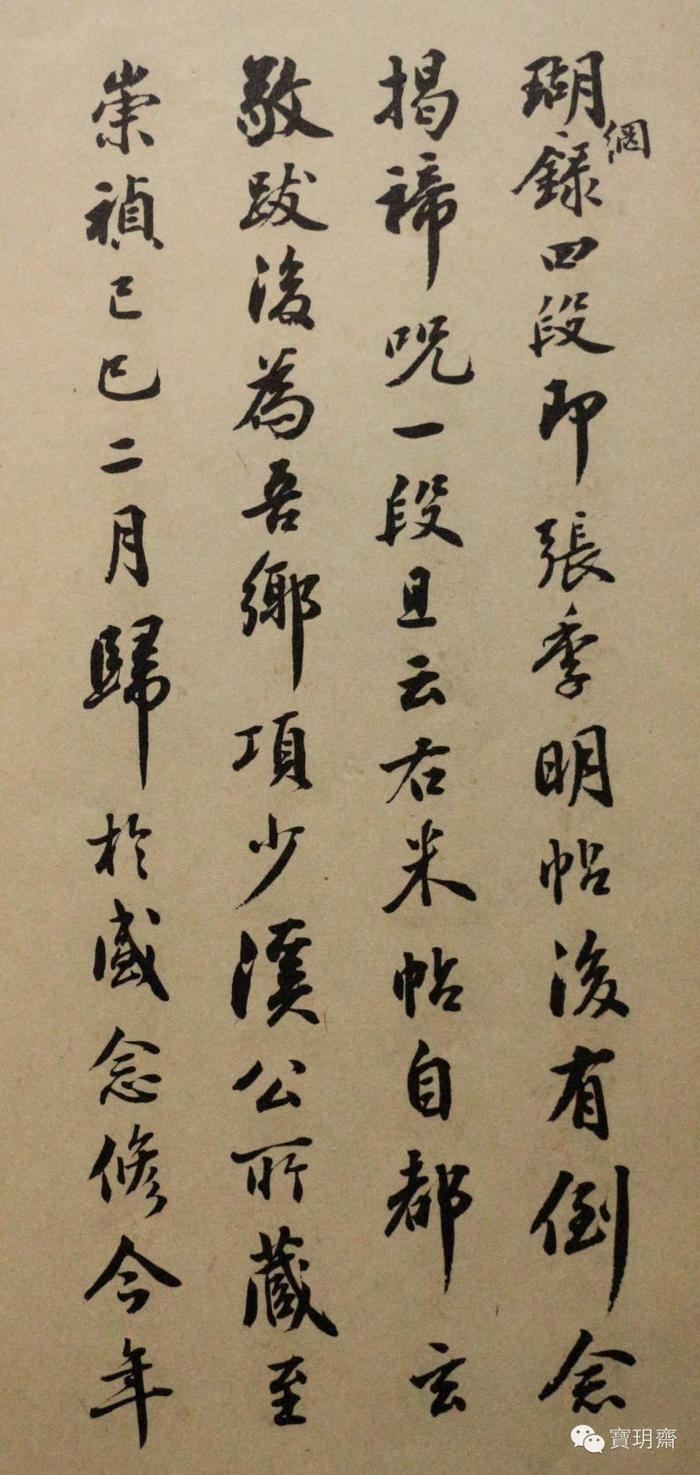 瑚網錄四段即張季明帖後有倒念
揭諦咒一段且云右米帖自都玄
敬跋後為吾鄉項少溪公所藏至
崇禎己巳二月歸於戚念修今年
寶玥齋